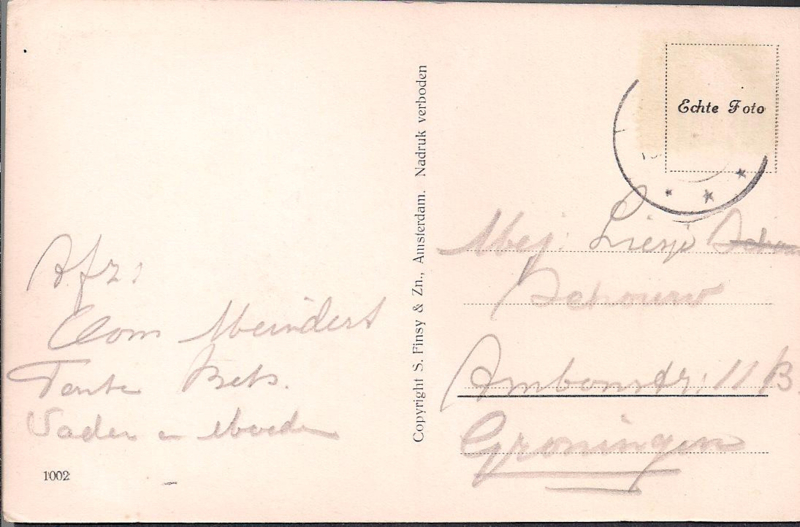 Afz:
Oom Meindert
Tante Bets.
Vader en Moeder
1002
Copyright S. Finsy & Zn., Amsterdam. Nadruk verboden
Echte Foto
Mej. Liesje
Schouw
Ambonstr. 11/B.
Groningen